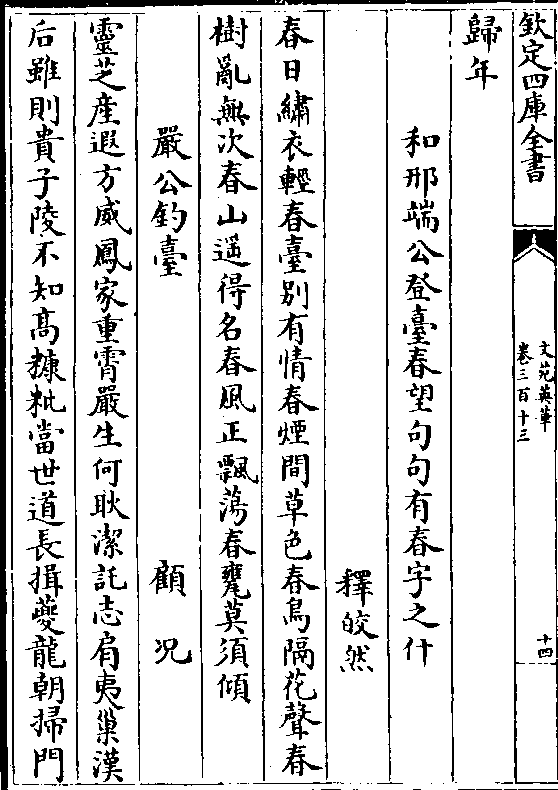 欽定四庫全書
文苑英華
卷三百十三
十四
歸年
和邢端公登臺春望句句有春字之什
釋皎然
春日繡衣輕春臺别有情春煙間草色春鳥隔花聲春
樹亂無次春山遥得名春風正飄蕩春甕莫須傾
嚴公釣臺
顧况
靈芝産遐方威鳳家重霄嚴生何耿潔託志肩夷巢漢
后雖則貴子陵不知髙糠粃當世道長揖夔龍朝掃門